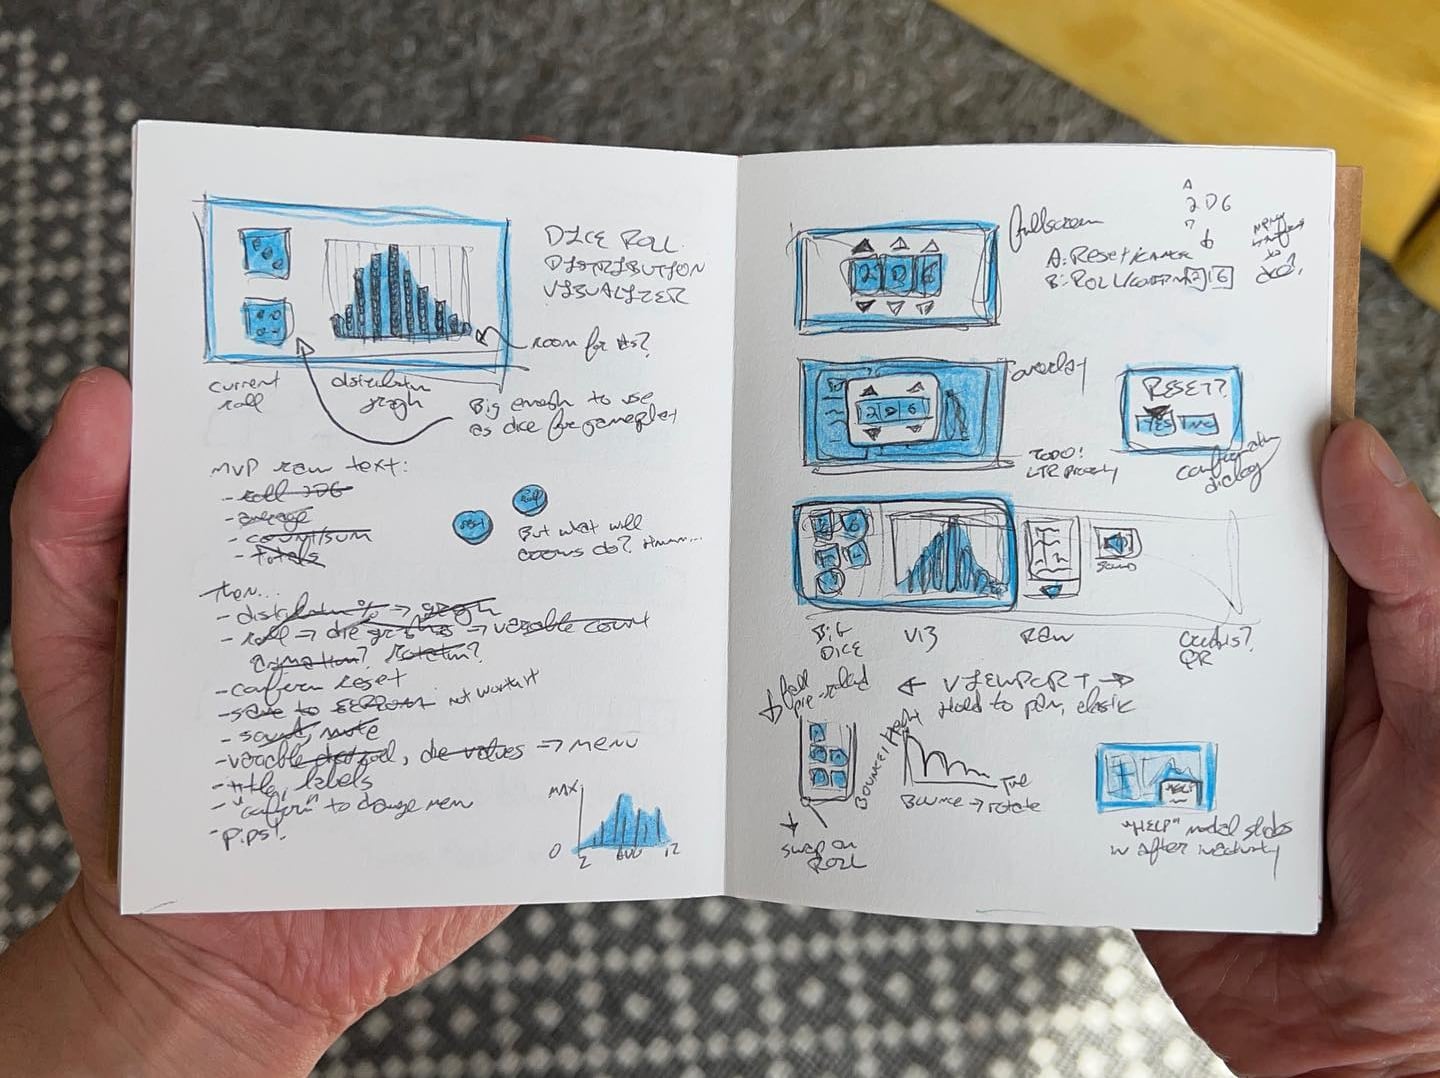 DICE ROLL
DISTRIBUTION
VISUALIZER
ROOM for #s?
current
roll
distributn
graph
Big enough to use
as dice for gameplay
MVP raw text:
- roll 2D6
- average
- count/sum
- totals
reset
roll
But what will
do? Hmm...
then...
- distributn % → graph
- roll → die graphics → variable count
animation? rotatn?
- confirm reset
- save to EEPROM not worth it
- sound, mute
- variable, die values → menu
- title, labels
- "confirm" to change menu
- pips!
MAX
0
2
AVG
12
fullscreen
A: Reset/cancel
B: ROLL/confirm
2 D 6
2 D 6
overlay
2 D 6
TODO!
RESET?
YES
NO
dialog
BIG
DICE
VIZ
RAW
Sound
Credits?
QR
← VIEWPORT →
Hold to pan, elastic
pre-rolled
swap on
ROLL
Bounce/Height
Time
Bounce → rotate
HELP
"HELP" modal slides
in after inactivity